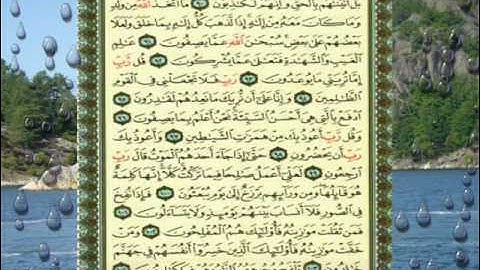 بَلْ أَتَيْنَاهُم بِالْحَقِّ وَإِنَّهُمْ لَكَاذِبُونَ ﴿٩٠﴾ مَا اتَّخَذَ اللَّهُ مِن وَلَدٍ
وَمَا كَانَ مَعَهُ مِنْ إِلَٰهٍ إِذًا لَّذَهَبَ كُلُّ إِلَٰهٍ بِمَا خَلَقَ وَلَعَلَا
بَعْضُهُمْ عَلَىٰ بَعْضٍ سُبْحَانَ اللَّهِ عَمَّا يَصِفُونَ ﴿٩١﴾ عَالِمِ
الْغَيْبِ وَالشَّهَادَةِ فَتَعَالَىٰ عَمَّا يُشْرِكُونَ ﴿٩٢﴾ قُل رَّبِّ
إِمَّا تُرِيَنِّي مَا يُوعَدُونَ ﴿٩٣﴾ رَبِّ فَلَا تَجْعَلْنِي فِي الْقَوْمِ
الظَّالِمِينَ ﴿٩٤﴾ وَإِنَّا عَلَىٰ أَن نُّرِيَكَ مَا نَعِدُهُمْ لَقَادِرُونَ ﴿٩٥﴾
ادْفَعْ بِالَّتِي هِيَ أَحْسَنُ السَّيِّئَةَ نَحْنُ أَعْلَمُ بِمَا يَصِفُونَ ﴿٩٦﴾
وَقُل رَّبِّ أَعُوذُ بِكَ مِنْ هَمَزَاتِ الشَّيَاطِينِ ﴿٩٧﴾ وَأَعُوذُ بِكَ
رَبِّ أَن يَحْضُرُونِ ﴿٩٨﴾ حَتَّىٰ إِذَا جَاءَ أَحَدَهُمُ الْمَوْتُ قَالَ رَبِّ
ارْجِعُونِ ﴿٩٩﴾ لَعَلِّي أَعْمَلُ صَالِحًا فِيمَا تَرَكْتُ كَلَّا إِنَّهَا كَلِمَةٌ
هُوَ قَائِلُهَا وَمِن وَرَائِهِم بَرْزَخٌ إِلَىٰ يَوْمِ يُبْعَثُونَ ﴿١٠٠﴾ فَإِذَا نُفِخَ
فِي الصُّورِ فَلَا أَنسَابَ بَيْنَهُمْ يَوْمَئِذٍ وَلَا يَتَسَاءَلُونَ ﴿١٠١﴾
فَمَن ثَقُلَتْ مَوَازِينُهُ فَأُولَٰئِكَ هُمُ الْمُفْلِحُونَ ﴿١٠٢﴾ وَمَنْ
خَفَّتْ مَوَازِينُهُ فَأُولَٰئِكَ الَّذِينَ خَسِرُوا أَنفُسَهُمْ فِي جَهَنَّمَ